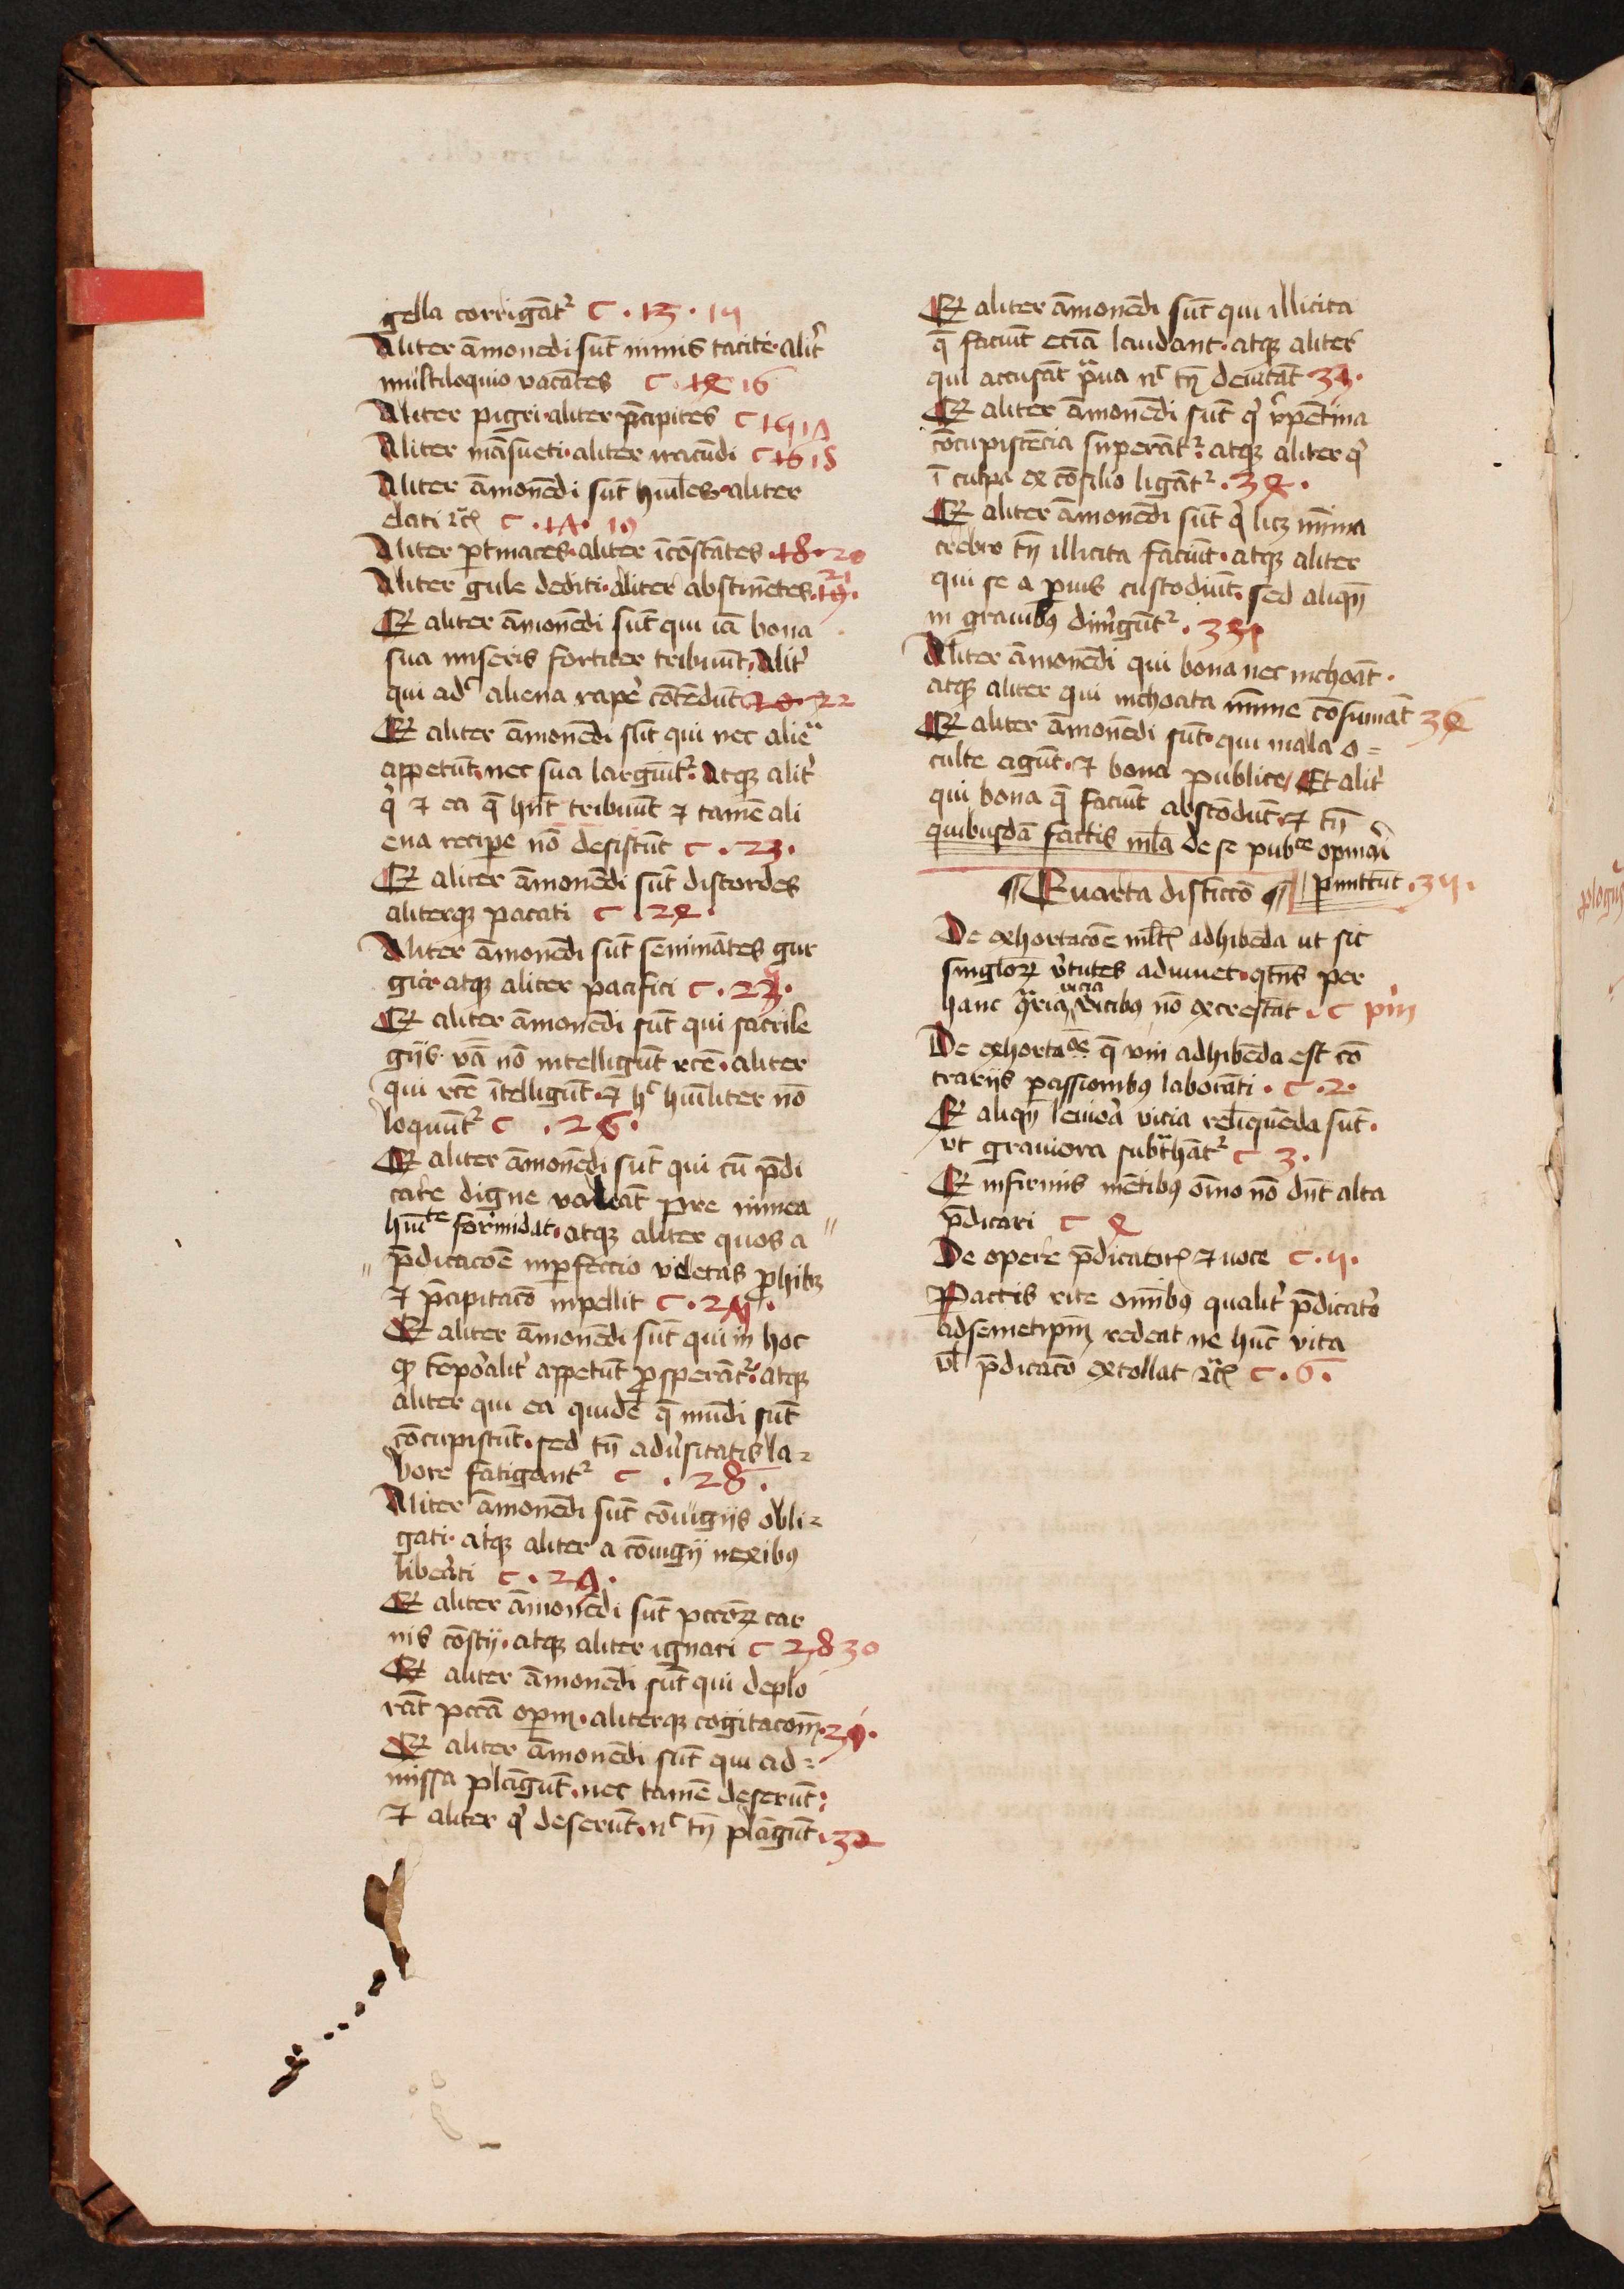 gella corrigāt² c . 13 . 14
Aliter āmonedi sūt nimis tacite · alit̉
multiloquio vacātes c . 16
Aliter pigri · aliter p̄cipites c
Aliter māsueti · aliter iracūdi c 18
Aliter āmonēdi sūt hūiles · aliter
elati c . 19
Aliter ptinaces · aliter īcōstātes · 18 · 20
Aliter gule dediti · aliter abstinētes · 19 · 21
Et aliter āmonēdi sūt qui iā bona
sua miseris fortiter tribuūt · Alit̉
qui adᶜ aliena rapẻ cōtēdūt 20 · 22
Et aliter āmonēdi sūt qui nec aliēa
appetūt · nec sua largiūt² · Atqꝫ alit̉
q̉ ⁊ ea q̄ hn̄t tribuūt ⁊ tamē ali
ena recipe nō desistūt c . 23 .
Et aliter āmonēdi sūt discordes
aliterqꝫ pacati c . 24 .
Aliter āmonēdi sūt seminātes iur
gia · atqꝫ aliter pacifici c . 25 .
Et aliter āmonēdi sūt qui sacrile
gijs v̄a nō intelligūt rcē · aliter
qui rcē ītelligūt · ⁊ hᶜ hūiliter nō
loquūt² c . 26 .
Et aliter āmonēdi sūt qui cū p̄di
care digne valeāt pre nimea
hūiᵗᵉ formidāt · atqꝫ aliter quos a
p̄dicacōe inperfectio vel etas ꝓhibꝫ
⁊ p̄cipitacō inpellit c . 27 .
Et aliter āmonēdi sūt qui in hoc
qꝫ tēpỏalit̉ appetūt ꝓsperāt² · atqꝫ
aliter qui ea quidē q̄ mūdi sūt
cōcupiscūt · sed tn̄ adủsitatis la=
bore fatigant² c . 28 .
Aliter āmonēdi sūt cōiugijs obli=
gati · atqꝫ aliter a cōiugij nexibꝯ
libẻati c . 29 .
Et aliter āmonēdi sūt pccōꝝ car
nis cōscij · atqꝫ aliter ignari c 30
Et aliter āmonēdi sūt qui deplo
rāt pccā opm̄ · aliterqꝫ cogitacom̄ ·
Et aliter āmonēdi sūt qui ad=
missa plāgūt · nec tamē deserūt :
⁊ aliter q̉ deserūt · nᶜ tn̄ plāgūt · 32
Et aliter āmonēdi sūt qui illicita
q̄ faciūt eciā laudant · atqꝫ aliter
qui accusāt pᵃua nᶜ tn̄ deuitāt 33 .
Et aliter āmonēdi sūt q̉ repētina
cōcupiscēcia superāt² : atqꝫ aliter q̉
ī culpa ex cōsilio ligāt² . 34 .
Et aliter āmonēdi sūt q̉ licꝫ mīma
crebro tn̄ illicita faciūt · atqꝫ aliter
qui se a puis custodiūt · sed aliqn̄
in grauibꝯ dimgūt² . 35
Aliter āmonēdi qui bona nec inchoāt ·
atqꝫ aliter qui inchoata mīme cōsumāt 36
Et aliter āmonēdi sūt · qui mala o=
culte agūt · ⁊ bona publice / Et alit̉
qui bona q̄ faciūt abscōdūt · ⁊ tn̄
quibusdā factis ml̄a de se pubᶜᵉ opinari
pmittūt . 37 .
¶ Quarta distictō ¶
De exhortacōe ml̄tꝝ adhibēda ut sic
singl̄orꝝ v̉tutes adiuuet · qtn̄s per
hanc ꝯᵗʳᵃria vicia v̉tutibꝯ nō excrescāt . c pm̄
De exhortaᵒᵉ q̄ vni adhibēda est cō
trarijs passionibꝯ laborāti . c . 2 .
Et aliqn̄ leuiora vicia reliquēda sūt ·
vt grauiora subtᵃhāt² c 3 .
Et infirmis mētibꝯ oīno nō dn̄t alta
p̄dicari c 4
De opere p̄dicatorꝭ ⁊ uoce c . 5 .
Pactis rite omībꝯ qualit̉ p̄dicator
ad semetipm̄ redeat ne hūc vita
vl̄ p̄dicacō extollat ⁊cꝭ c . 6 .
plogus